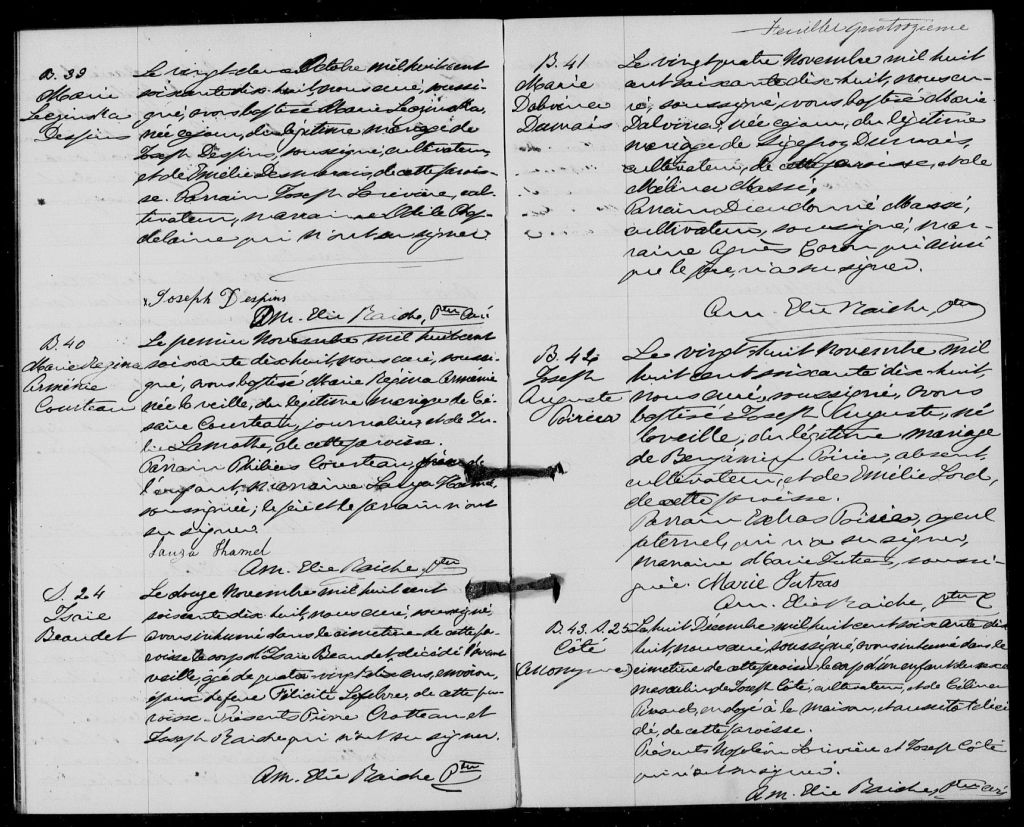 B. 39
Marie
Leczinska
Despins
Le vingt-deux Octobre mil huit cent
soixante dix-huit, nous curé, soussi-
gné, avons baptisé Marie Leczinska,
née ce jour, du légitime mariage de
Joseph Despins, soussigné, cultivateur,
et de Emélie Desmarais, de cette parois-
se. Parrain Joseph Larivière, cul-
tivateur, marraine Odile Chap-
delaine qui n'ont su signer
x Joseph Despins
Am. Elie Raiche, Ptre Curé
B. 40
Marie Régina
Arménie
Courteau
Le premier Novembre mil huit cent
soixante dix huit, nous curé, soussi-
gné, avons baptisé Marie Régina Arménie
née la veille, du légitime mariage de Cé-
saire Courteau, journalier, et de Ju-
lie Lamothe, de cette paroisse.
Parrain Philias Courteau, frère de
l'enfant, marraine
soussignée; le père et le parrain n'ont
su signer
Hamel
Am. Elie Raiche, Ptre
S. 24
Isaïe
Beaudet
Le douze Novembre mil huit cent
soixante dix huit, nous curé, soussigné
avons inhumé dans le cimetière de cette pa-
roisse le corps d'Isaïe Beaudet, décédé l'avant
veille, agé de quatre-vingt-dix ans, environ,
époux de feue Félicité Lefebvre, de cette pa-
roisse. Présents Pierre Crotteau et
Joseph Raiche qui n'ont su signer.
Am. Elie Raiche Ptre
Feuillet quatorzième
B. 41
Marie
Dalvina
Dumais
Le vingt quatre Novembre mil huit
cent soixante dix-huit, nous cu-
ré, soussigné, avons baptisé Marie
Dalvina, née ce jour, du légitime
mariage de Dumais,
cultivateur, de cette paroisse, et de
Mélina Massé,
Parrain Dieudonné Massé,
cultivateur, soussigné, mar-
raine Agnès Caron qui ainsi
que le père, n'a su signer.
Am. Elie Raiche, Ptre
B. 42
Joseph
Auguste
Poirier
Le vingt-huit Novembre mil
huit cent soixante dix-huit,
nous curé, soussigné, avons
baptisé Joseph Auguste, né
la veille, du légitime mariage
de Benjamin Poirier, absent,
cultivateur, et de Emélie Lord,
de cette paroisse.
Parrain Poirier, ayeul
paternel, qui n'a su signer,
marraine Marie Jutras, soussi-
gnée. Marie Jutras
Am. Elie Raiche, Ptre C
B. 43. S. 25
Côté
(Anonyme)
Le huit Décembre mil huit cent soixante dix
huit, nous curé, soussigné, avons inhumé dans le
cimetière de cette paroisse le corps d'un enfant du sexe
masculin de Joseph Côté, cultivateur, et de Célina
ondoyé à la maison, et aussitôt décé-
dé, de cette paroisse.
Présents Napoléon Larivière et Joseph Côté
qui n'ont su signer.
Am. Elie Raiche, Ptre curé